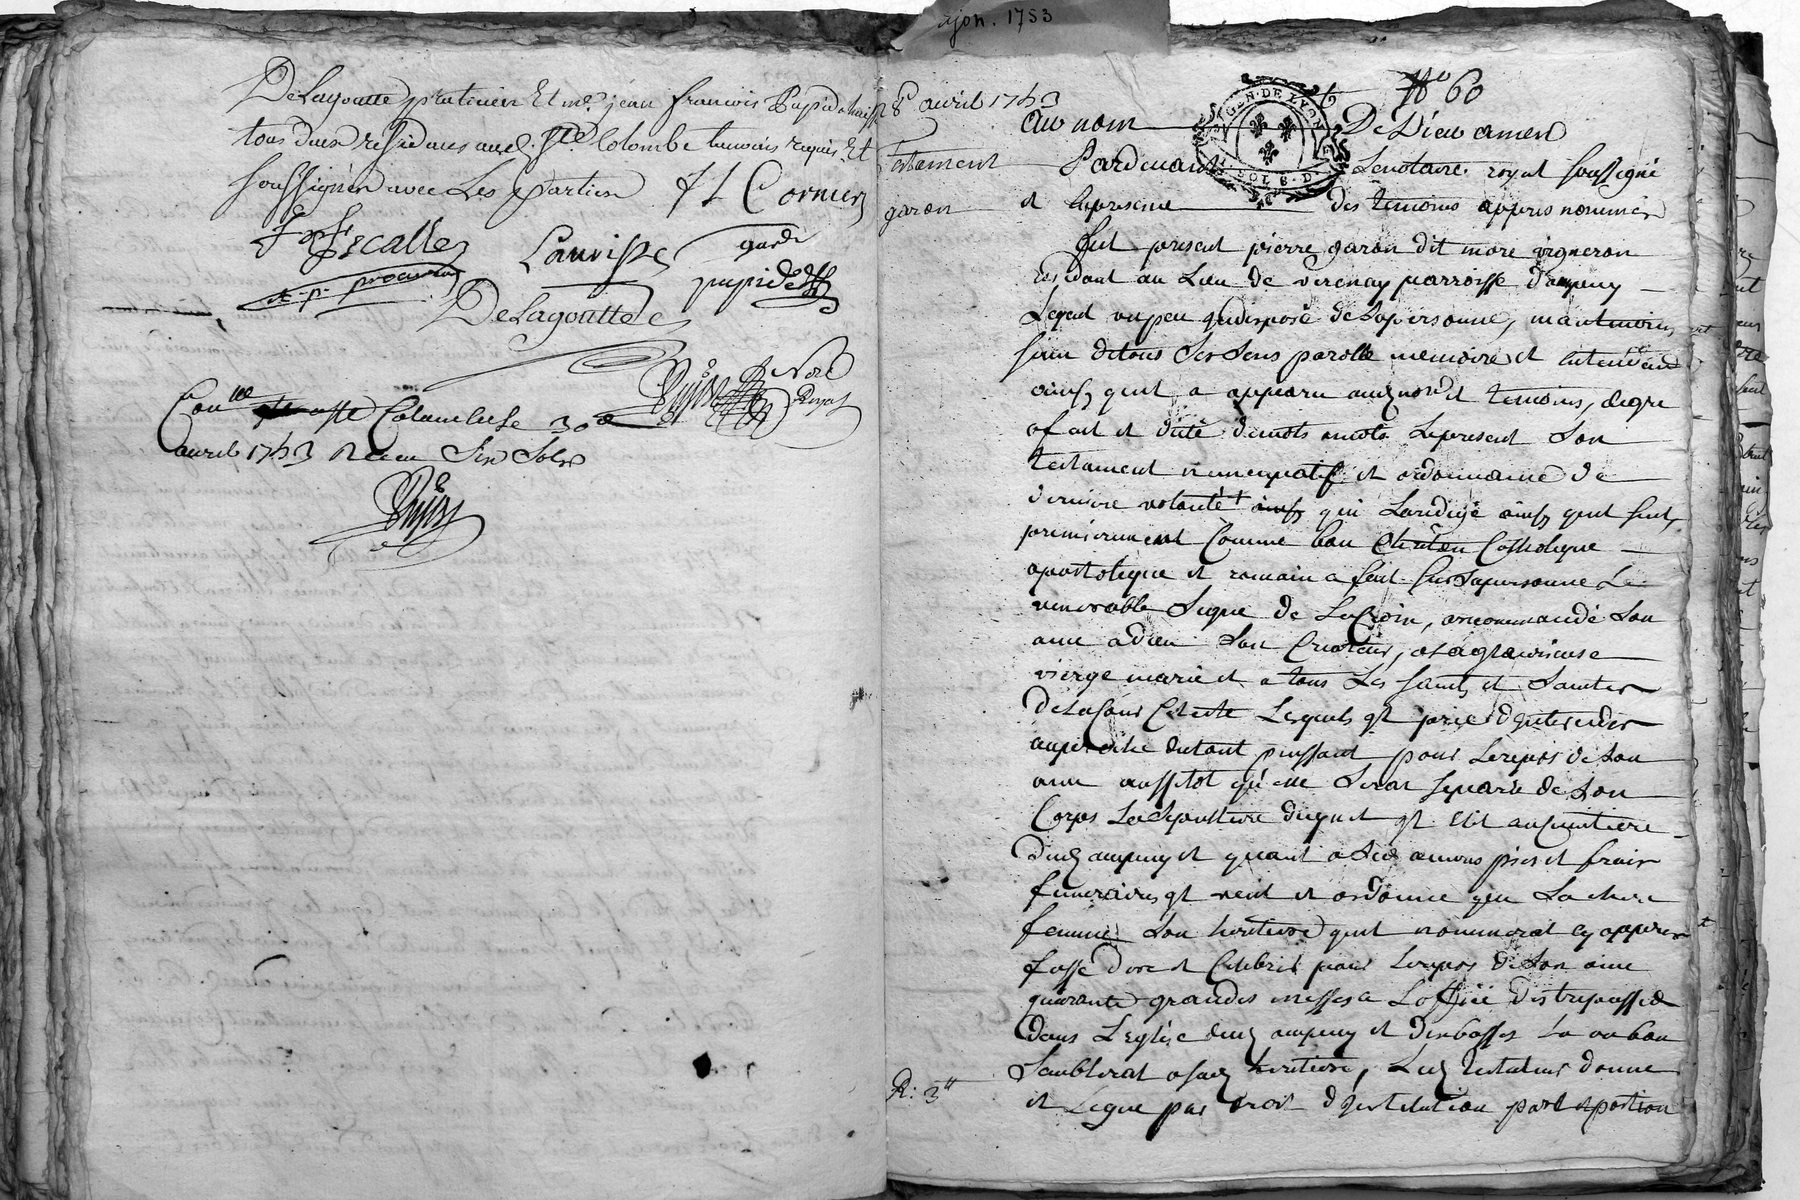 ajon. 1753
DeLagoutte praticien Et me jean francois Pupid
tous deux residans aud. Ste Colombe temoins requis Et
soussignés avec Les parties J L Cornier
Escalle
Lauriss
garde
procureur
pupid
DeLagoutte
Nore
Royal
Conlle a Ste Colombe Le 30e
avril 1753 Receu Six Sols
8e avril 1753
testament
garon
R: 3tt
No 60
GEN. DE LYON
SOLS. D.
Au nom De Dieu amen
Pardevant Le notaire royal soussigné
et En presence des temoins appres nommés
fut present pierre garon dit more vigneron
residant au Lieu de verenay parroisse d'ampuy
Lequel un peu Indisposé de Sa personne, maintmoins
sain de tous Ses Sens parolle memoire et entendem
ainsy quil a apparu aud no.re et temoins, de gre
a fait et dicté de mots a mots Le present Son
testament nuncupatif et ordonnance de
derniere volonté qui La redigé ainsy quil suit,
premierement Comme bon Chretien Catholique
apostolique et romain a fait Sur Sa personne Le
venerable Signe de La Croix, a recommandé Son
ame a Dieu Son Createur, a La glorieuse
vierge marie et a tous Les Saints et Saintes
de La Cour Celeste Lesquels Il prie d'Interceder
aupres de du tout puissant pour Le repos de Son
ame aussitot qu'elle Serat separée de Son
Corps La Sepulture duquel Il Elit au Cimetiere
dud ampuy et quant a Ses aumons pies et frais
funeraires Il veut et ordonne que Sa chere
femme Son heritiere quil nommerat cy appres
fasse dire et Celebrer pour Le repos de Son ame
quarante grandes messes a L'office des trepassés
dans L'eglise dud ampuy et de basses La ou bon
Semblerat a Sad heritiere, Led testateur donne
et Legue par droit d'Institution part et portion